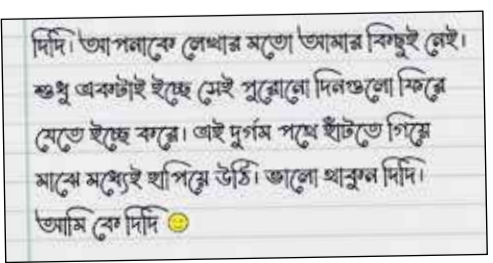 দিদি। আপনাকে লেখার মতো আমার কিছুই নেই।
শুধু একটাই ইচ্ছে সেই পুরোনো দিনগুলো ফিরে
যেতে ইচ্ছে করে। এই দুর্গম পথে হাঁটতে গিয়ে
মাঝে মধ্যেই হাপিয়ে উঠি। ভালো থাকুন দিদি।
আমি কে দিদি 🙂